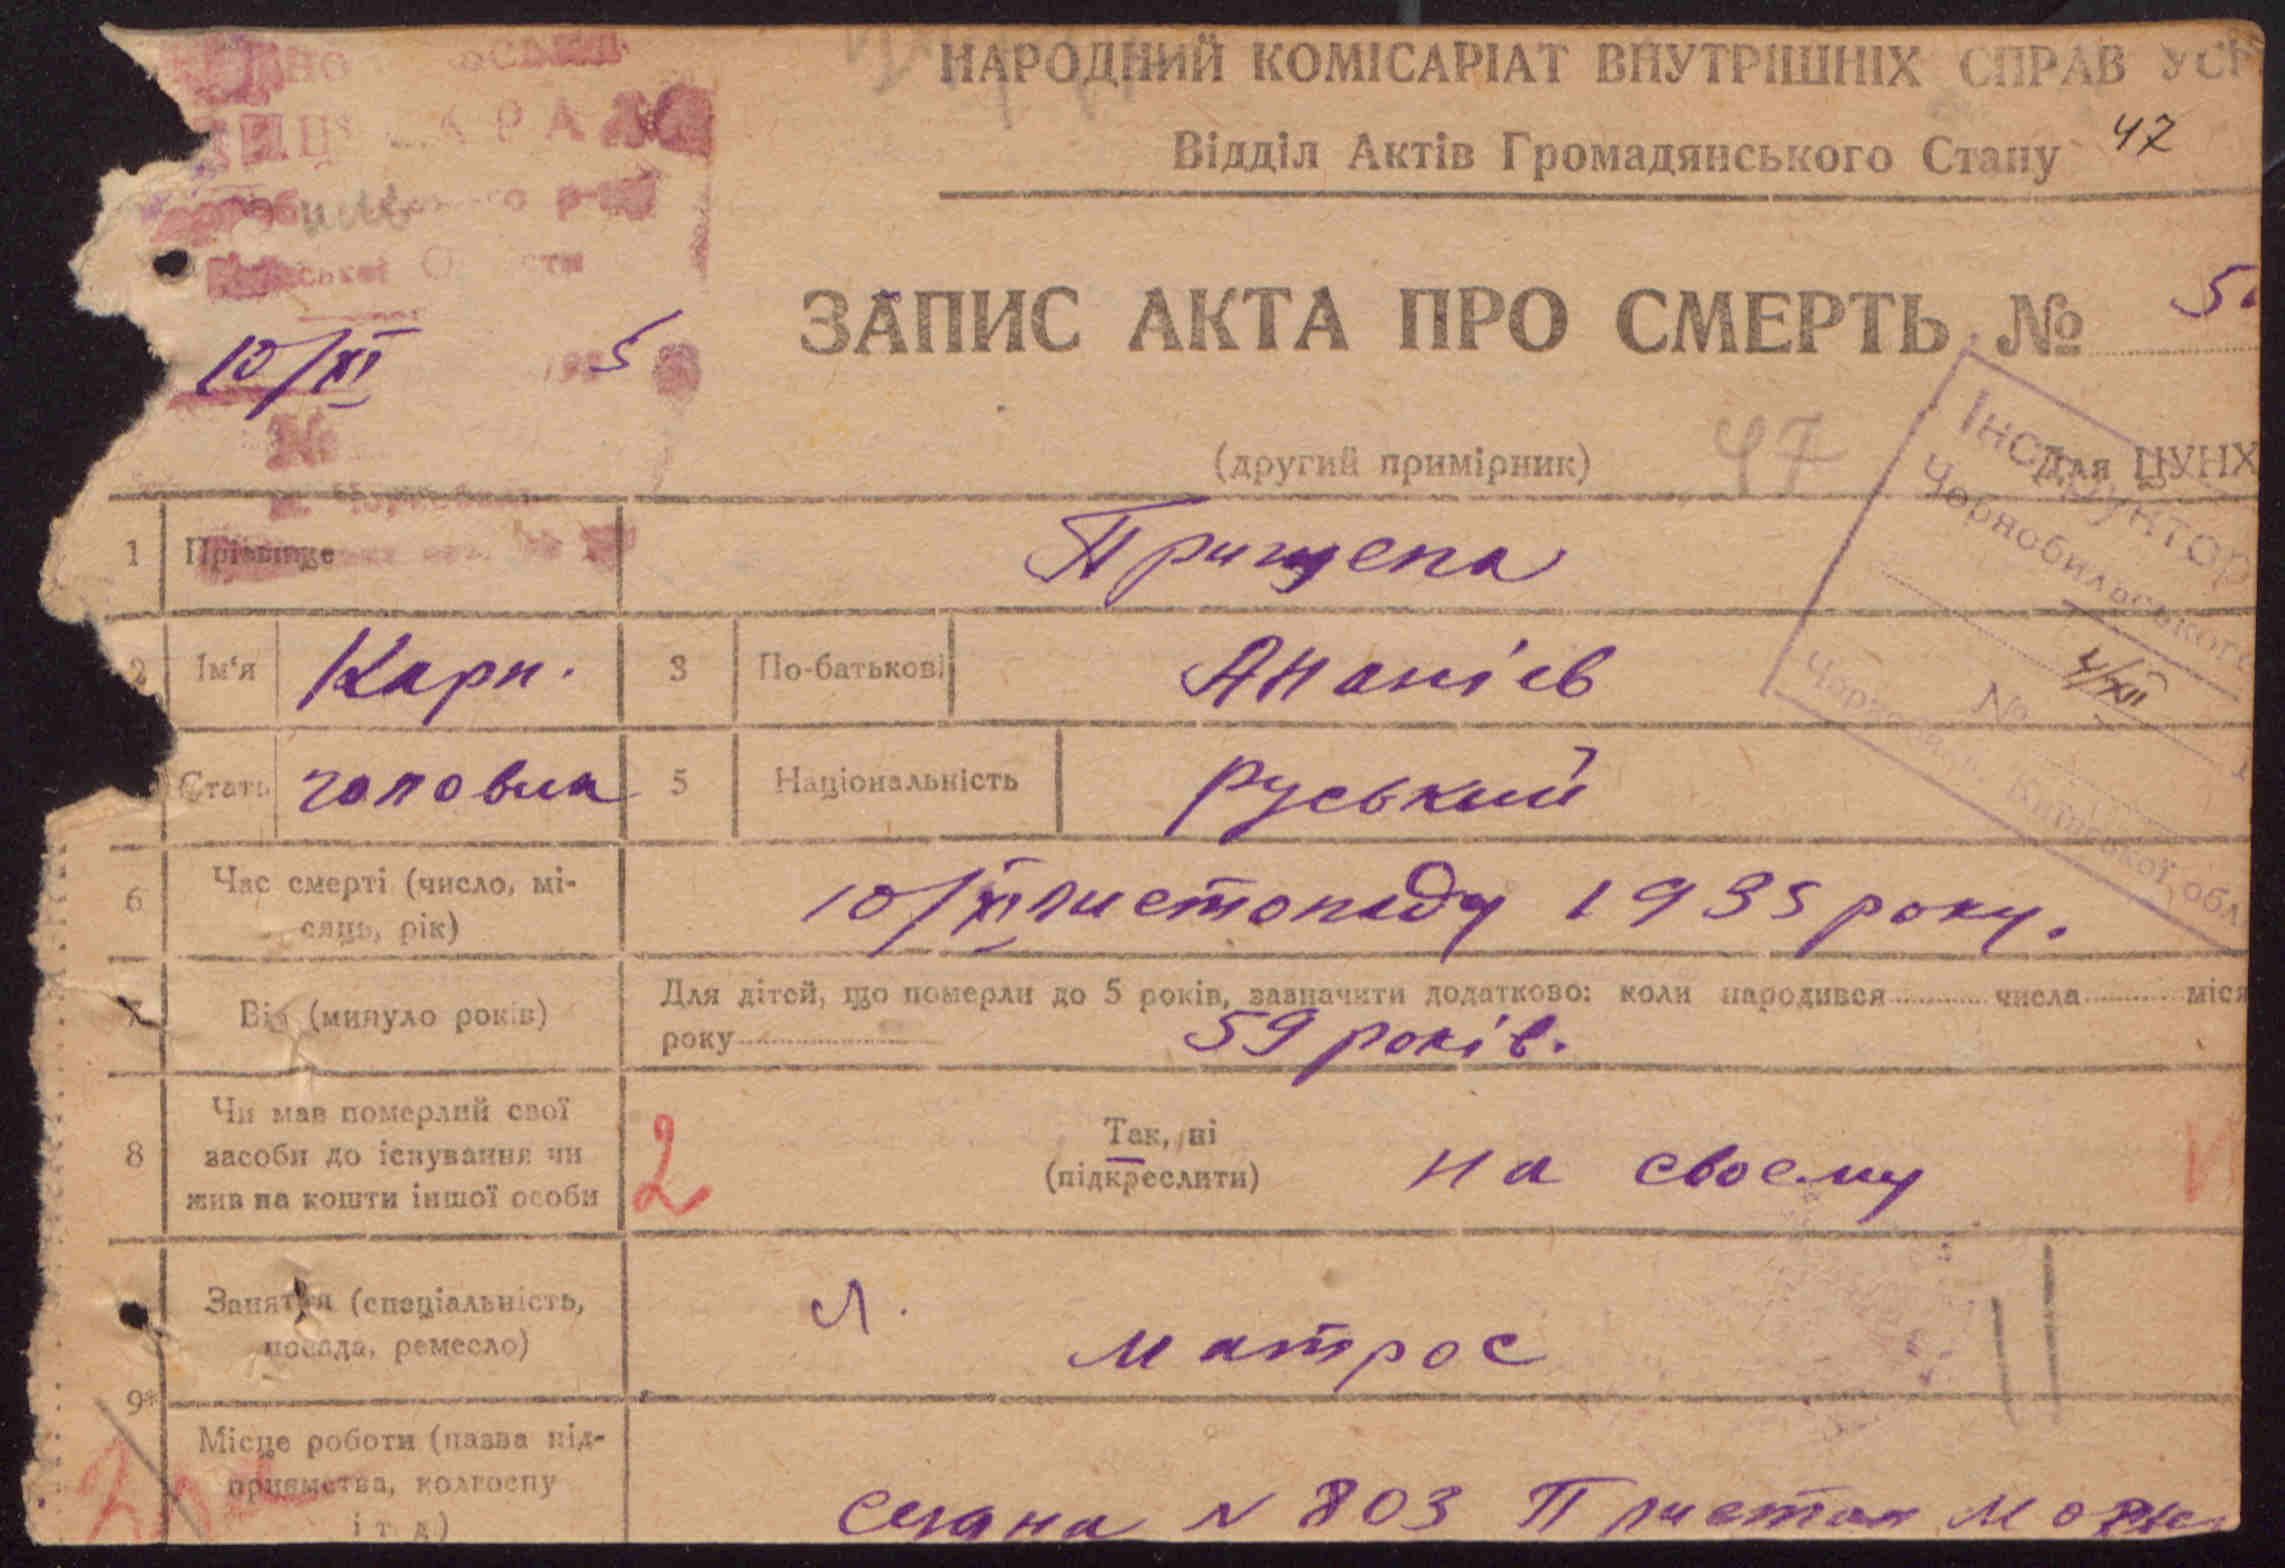 НАРОДНИЙ КОМІСАРІАТ ВНУТРІШНІХ СПРАВ УСР
Відділ Актів Громадянського Стану 47
10/XI 5
ЗАПИС АКТА ПРО СМЕРТЬ №
(другий примірник) 47
Для ЦУНХ
Інструктор
Чорнобильського
4/XII
№
Київської обл
1 Прізвище Прищепа
2 Ім'я Карп. 3 По-батькові Ананієв
Стать чоловіча 5 Національність руський
6 Час смерті (число, мі-
сяць, рік) 10/XI листопаду 1935 року.
7 Вік (минуло років) Для дітей, що померли до 5 років, зазначити додатково: коли народився числа міся
року 59 років.
8 Чи мав померлий свої
засоби до існування чи
жив на кошти іншої особи
2 Так, ні
(підкреслити) на своєму
Заняття (спеціальність,
посада, ремесло) матрос
9*
Місце роботи (назва під-
приємства, колгоспу
і т д) N 803